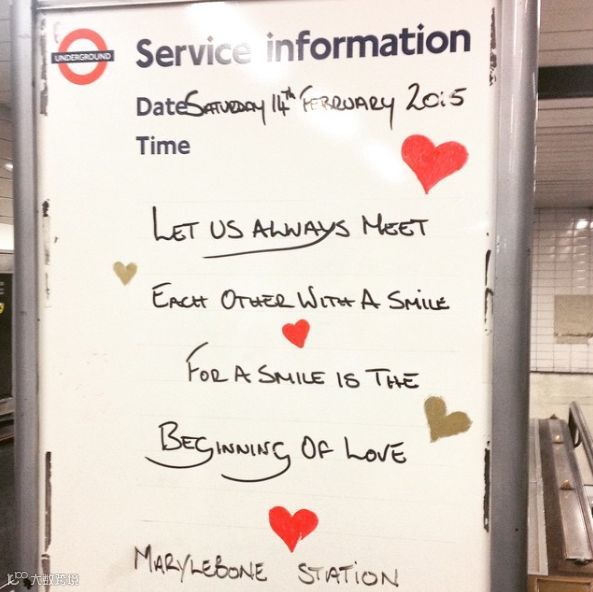 UNDERGROUND
Service information
Date SATURDAY 14th FEBRUARY 2015
Time
LET US ALWAYS MEET
EACH OTHER WITH A SMILE
FOR A SMILE IS THE
BEGINNING OF LOVE
MARYLEBONE STATION
大数跨境